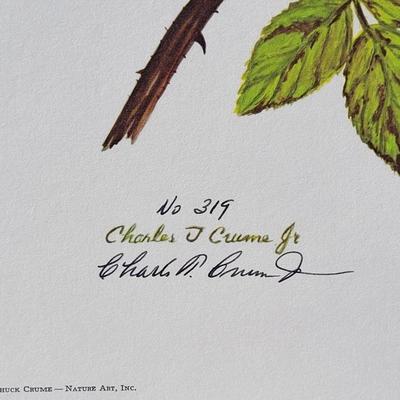 No 319
Charles J Crume Jr
Charles J. Crume Jr
HUCK CRUME — NATURE ART, INC.